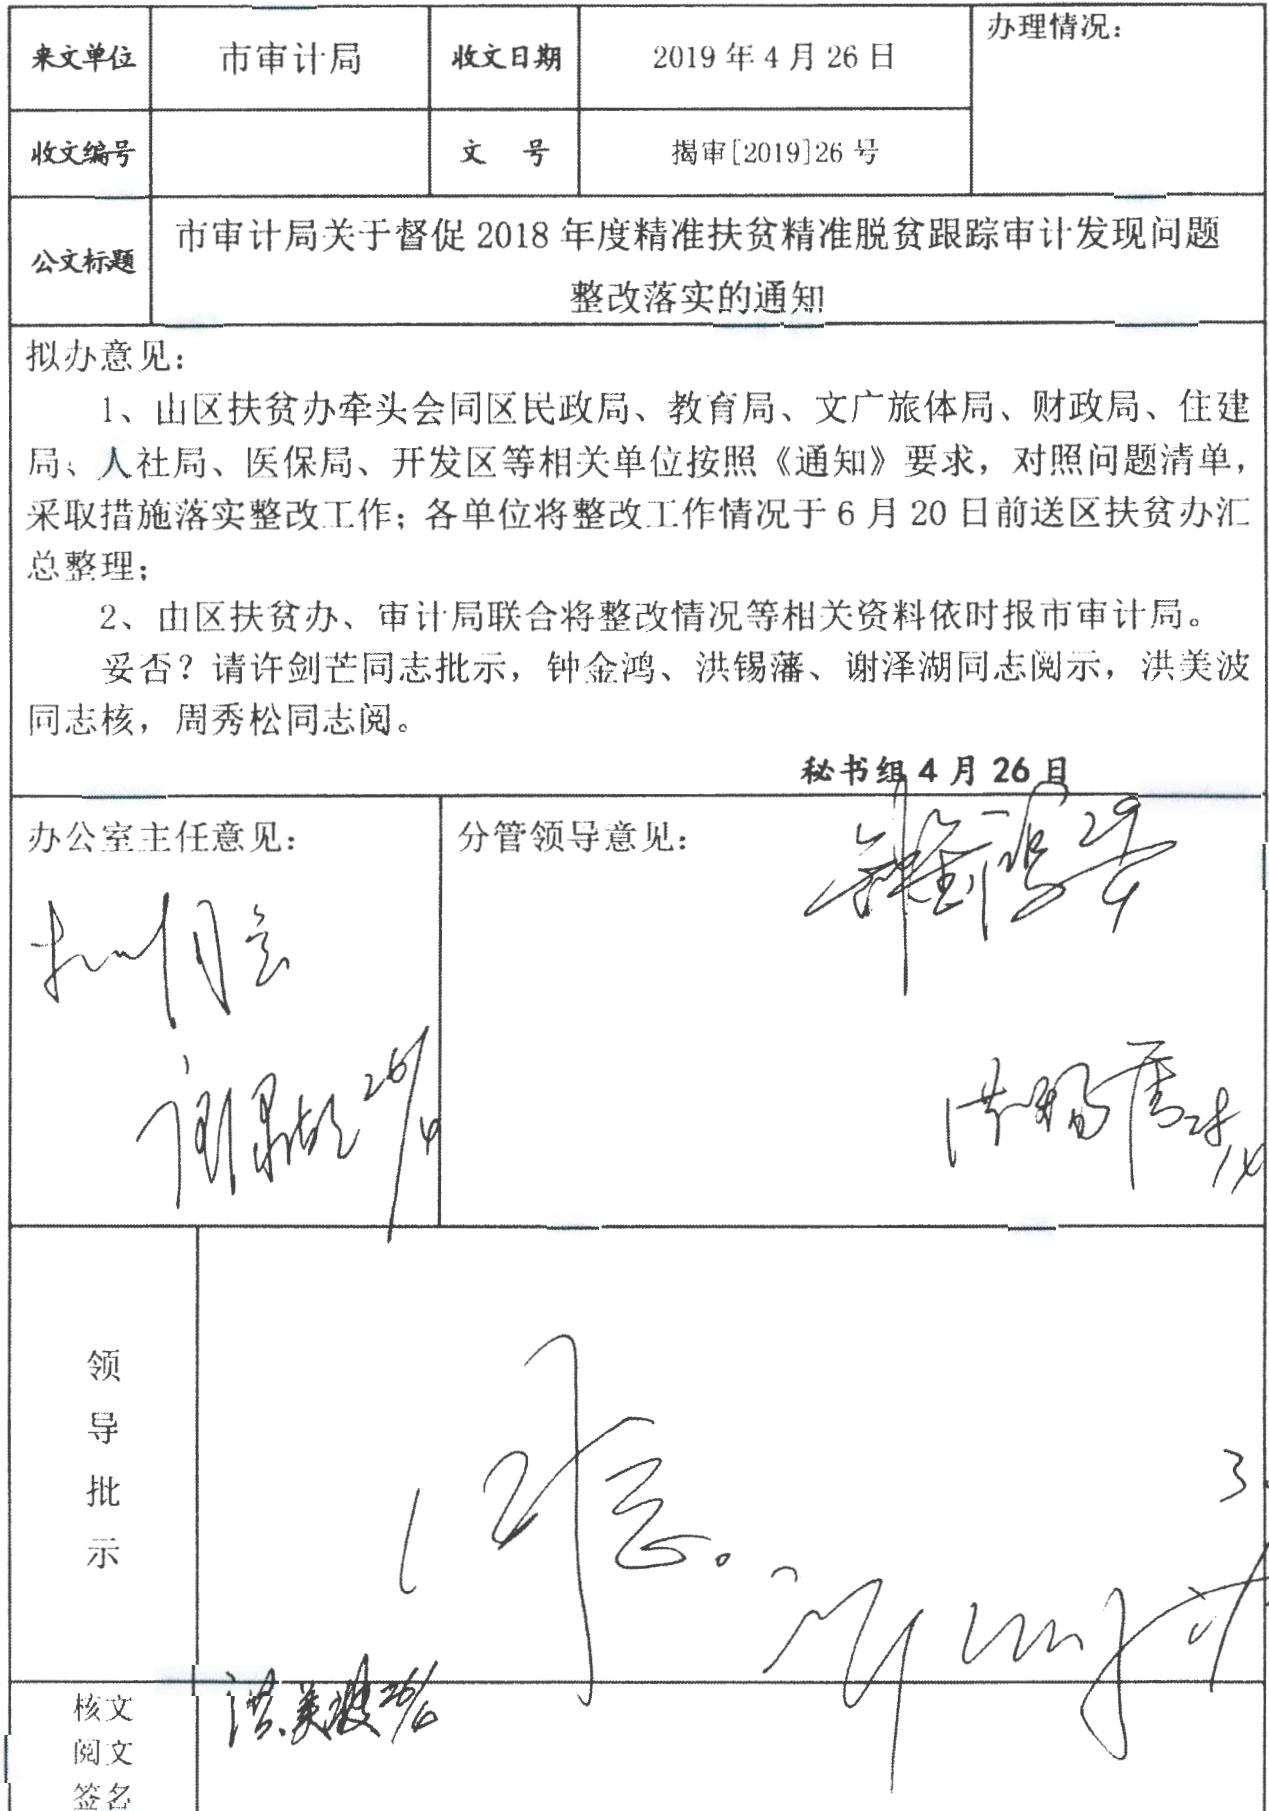 来文单位 市审计局 收文日期 2019年4月26日 办理情况：
收文编号 文 号 揭审[2019]26号
公文标题 市审计局关于督促2018年度精准扶贫精准脱贫跟踪审计发现问题
整改落实的通知
拟办意见：
1、由区扶贫办牵头会同区民政局、教育局、文广旅体局、财政局、住建
局、人社局、医保局、开发区等相关单位按照《通知》要求，对照问题清单，
采取措施落实整改工作；各单位将整改工作情况于6月20日前送区扶贫办汇
总整理；
2、由区扶贫办、审计局联合将整改情况等相关资料依时报市审计局。
妥否？请许剑芒同志批示，钟金鸿、洪锡藩、谢泽湖同志阅示，洪美波
同志核，周秀松同志阅。
秘书组4月26日
办公室主任意见：
分管领导意见：
钟金鸿 29/4
26/4
洪锡藩
领
导
批
示
核文
阅文
签名
洪美波 26/4